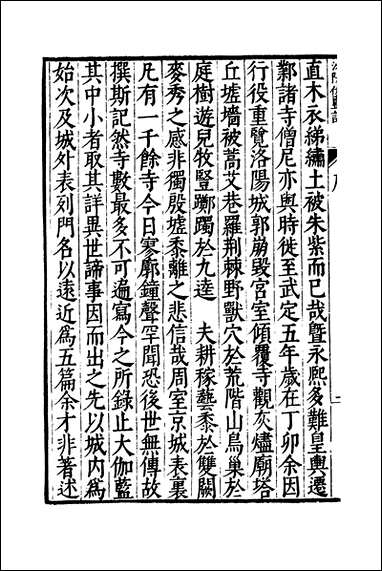 直木衣綈繡土被朱紫而已哉曁永熙多難皇輿遷
鄴諸寺僧尼亦與時徙至武定五年歲在丁卯余因
行役重覽洛陽城郭崩毀宮室傾覆寺觀灰燼廟塔
丘墟墻被蒿艾巷羅荆棘野獸穴於荒階山鳥巢於
庭樹遊兒牧豎躑躅於九逵　夫耕稼藝黍於雙闕
麥秀之感非獨殷墟黍離之悲信哉周室京城表裏
凡有一千餘寺今日寥廓鐘聲罕聞恐後世無傳故
撰斯記然寺數最多不可遍寫今之所錄止大伽藍
其中小者取其詳異世諦事因而出之先以城内為
始次及城外表列門名以遠近為五篇余才非著述